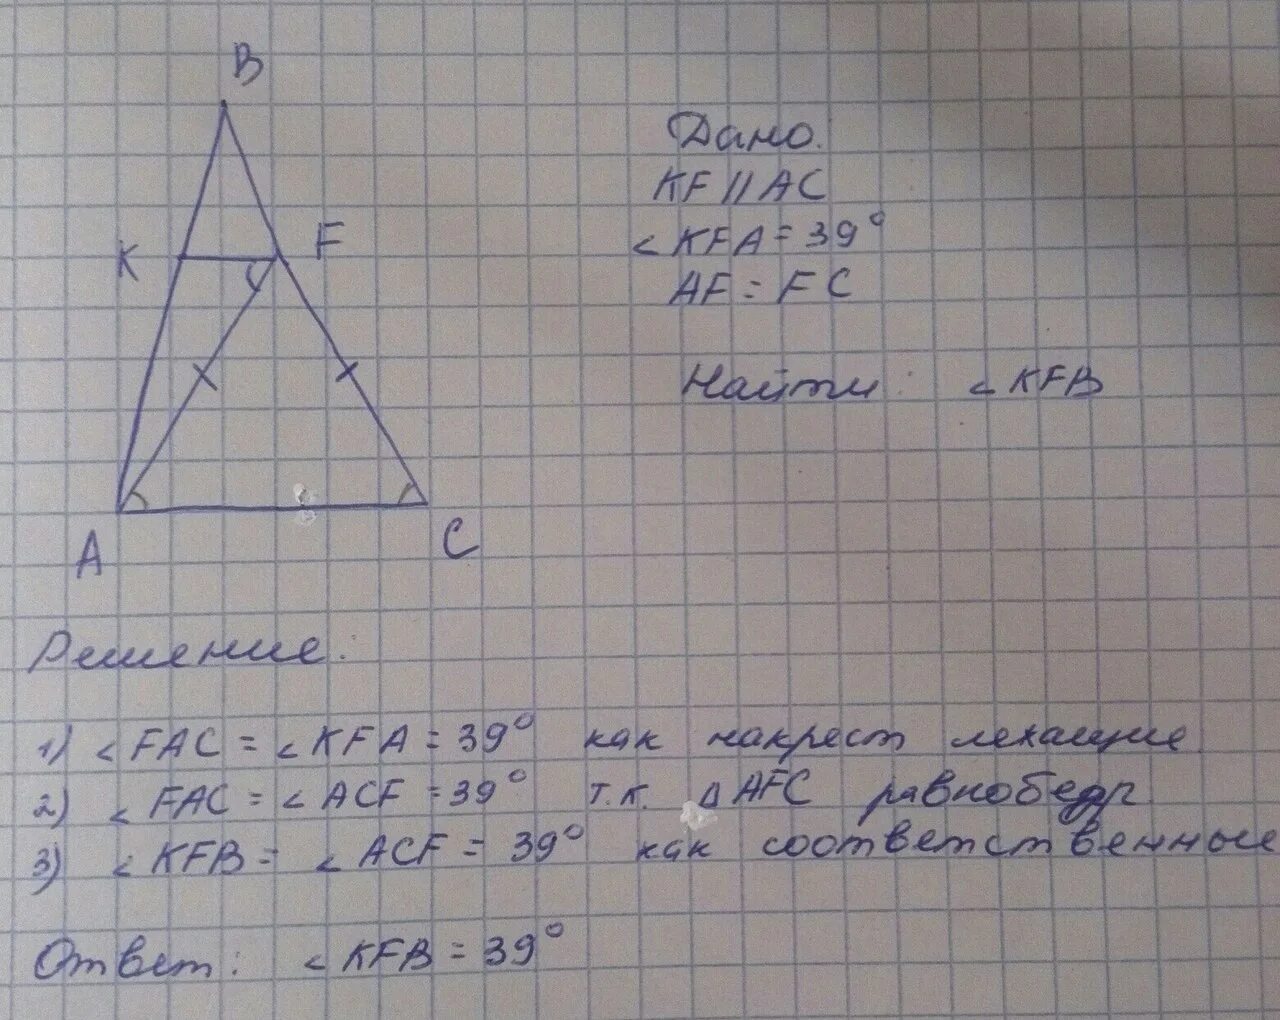 B
K
F
A
C
Дано.
KF // AC
∠KFA = 39°
AF = FC
Найти: ∠KFB
Решение.
1) ∠FAC = ∠KFA = 39° как накрест лежащие
2) ∠FAC = ∠ACF = 39° т.к. △AFC равнобедр.
3) ∠KFB = ∠ACF = 39° как соответственные
Ответ: ∠KFB = 39°